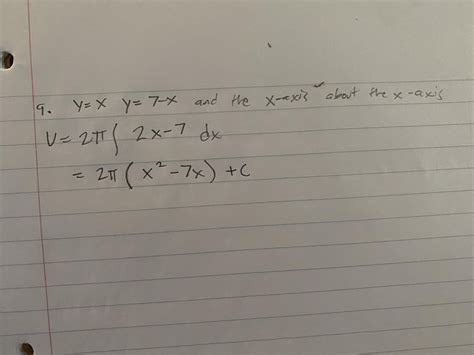 9. y=x y= 7-x and the x-axis about the x-axis
V= 2π∫ 2x-7 dx
= 2π(x²-7x) +C